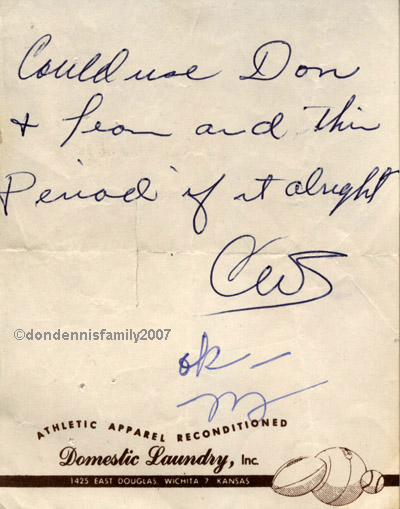 Could use Don
& Leon and this
Period if it alright
CWS
©dondennisfamily2007
ok —
ATHLETIC APPAREL RECONDITIONED
Domestic Laundry, Inc.
1425 EAST DOUGLAS, WICHITA 7 KANSAS